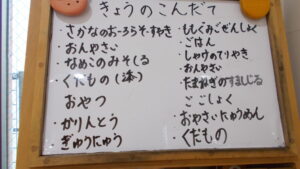 きょうのこんだて
さかなのおーろらそーすやき
・おんやさい
・なめこのみそしる
・くだもの
おやつ
・かりんとう
・ぎゅうにゅう
・ごはん
・しゃけのてりやき
・おんやさい
・たまねぎのすましじる
ごごしょく
・おやさいにゅうめん
・くだもの